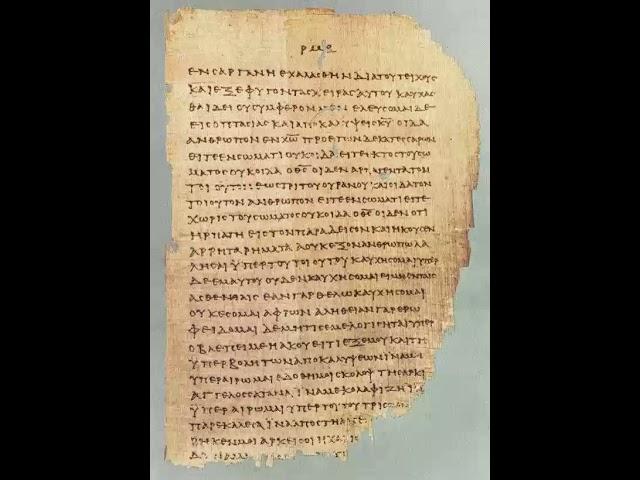 ενϲαργανηεχαλαϲθηνδιατουτειχουϲ
καιεξεφυγονταϲχειραϲαυτουκαυχαϲ
θαιδειουϲυμφερονμενελευϲομαιδε
ειϲοπταϲιαϲκαιαποκαλυψειϲκ̅υ̅οιδα
ανθρωπονενχ̅ω̅προετωνδεκατεϲϲαρων
ειτεενϲωματιουκοιδαειτεεκτοϲτουϲω
ματοϲουκοιδαοθ̅ϲ̅οιδεναρπαγεντατον
τοιουτονεωϲτριτουουρανουκαιοιδατον
τοιουτονανθρωπονειτεενϲωματιειτε
χωριϲτουϲωματοϲουκοιδαοθ̅ϲ̅οιδενοτι
ηρπαγηειϲτονπαραδειϲονκαιηκουϲεν
αρρηταρηματααουκεξονανθρωπωλα
ληϲαιϋπερτουτοιουτουκαυχηϲομαιϋπερ
δεεμαυτουουδενκαυχηϲομαιειμηενταιϲ
αϲθενειαιϲεανγαρθελωκαυχηϲομαι
ουκεϲομαιαφρωναληθειανγαρερω
φειδομαιδεμητιϲεμελογιϲηταιϋπερ
οβλεπειμεηακουειτιεξεμουκαιτη
ϋπερβολητωναποκαλυψεωνϊναμη
υπεραιρωμαιεδοθημοιϲκολοψτηϲαρκι
αγγελοϲϲαταναϊναμεκολαφιζη
ϋπεραιρωμαιυπερτουτουτριϲ
παρεκαλεϲαϊνααποϲτηα
ρηκενμοιαρκειϲοιηχαριϲ